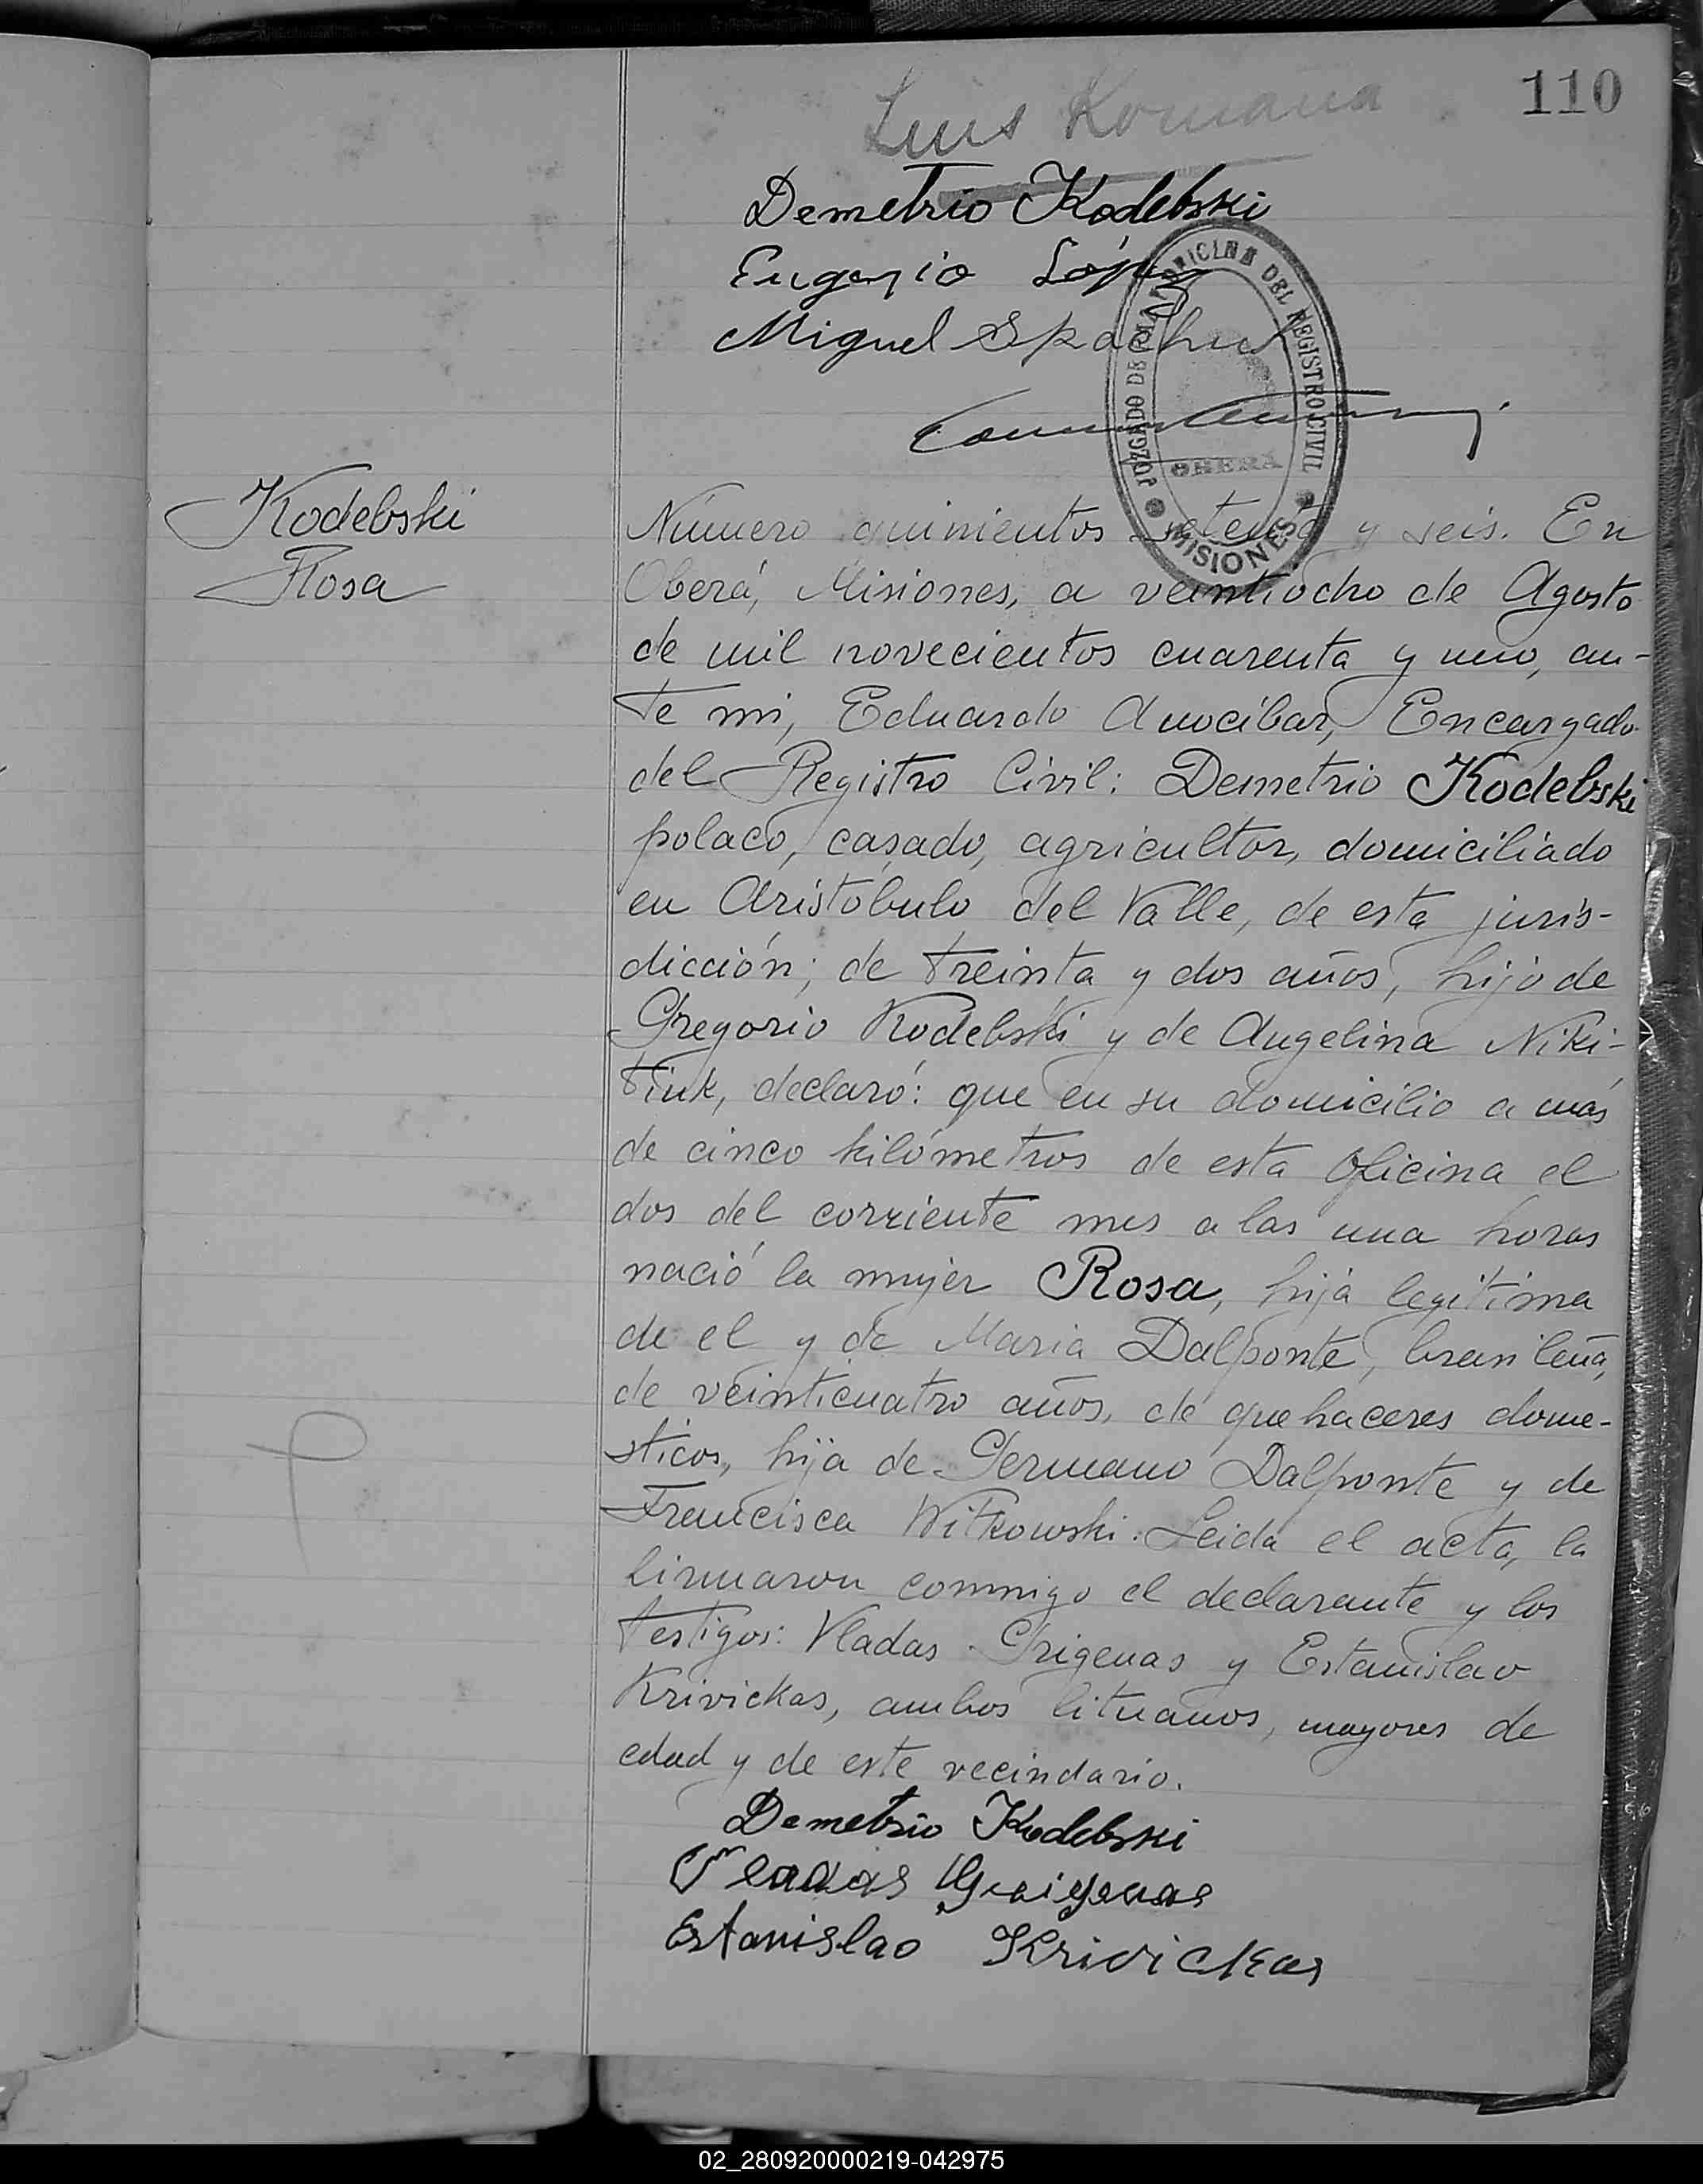 110
Luis Romana
Demetrio Kodebski
Eugenio López
Miguel
OFICINA DEL REGISTRO CIVIL
JUZGADO DE PAZ
OBERÁ
MISIONES
Kodebski
Rosa
Número quinientos setenta y seis. En
Oberá, Misiones, a veintiocho de Agosto
de mil novecientos cuarenta y uno, an-
te mi, Eduardo Anocibar, Encargado
del Registro Civil: Demetrio Kodebski
polaco, casado, agricultor, domiciliado
en Aristóbulo del Valle, de esta juris-
dicción; de treinta y dos años, hijo de
Gregorio Kodebski y de Angelina Niki-
tiuk, declaró: que en su domicilio a más
de cinco kilómetros de esta Oficina el
dos del corriente mes a las una horas
nació la mujer Rosa, hija legítima
de el y de Maria Dalponte, brasileña,
de veinticuatro años, de quehaceres dome-
sticos, hija de Germano Dalponte y de
Francisca Witkowski. Leida el acta, la
firmaron conmigo el declarante y los
testigos: Vladas Grigenas y Estanislao
Krivickas, ambos lituanos, mayores de
edad y de este vecindario.
Demetrio Kodebski
Vladas Grigenas
Estanislao Krivickas
02_280920000219-042975